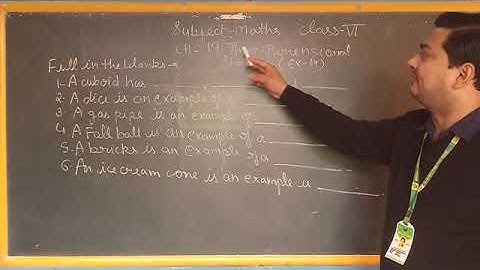 Subject-Maths Class-VI
CH-19, Three Dimensional
(Ex-19)
Fill in the blanks-
1-A cuboid has
2- A dice is an example of
3 A gas pipe is an example of
4 A Foll ball is an example of a
5. A bricks is an example of a
6. An icecream cone is an example is